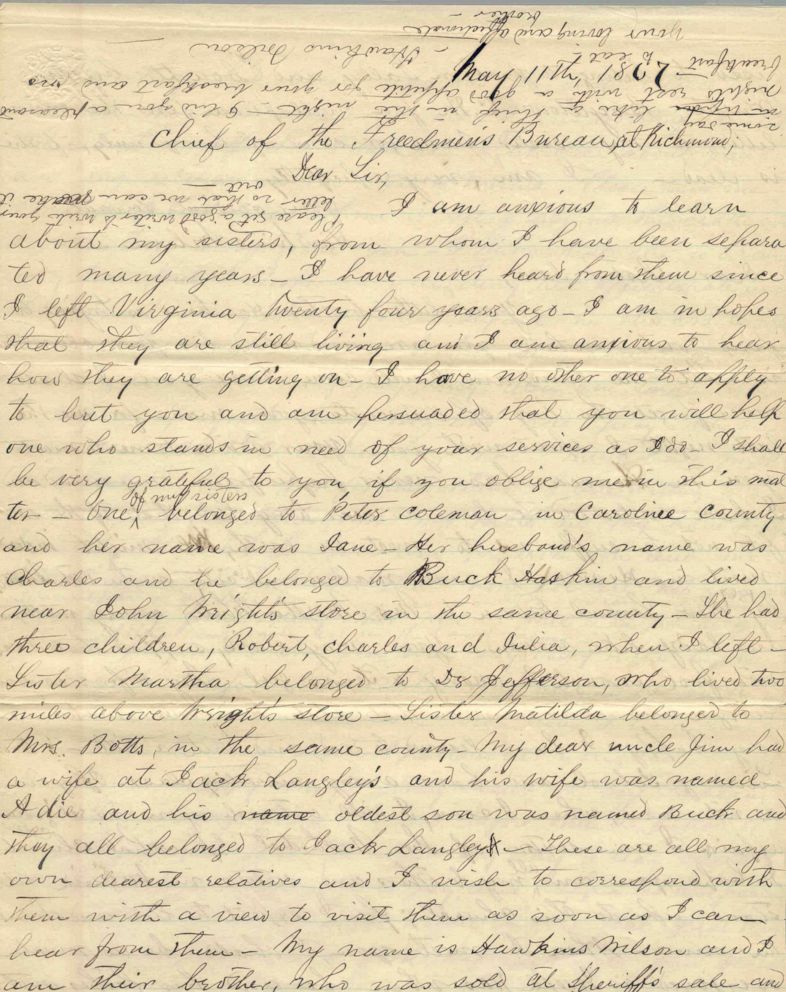 May 11th, 1867
Chief of the Freedmen's Bureau, at Richmond;
Dear Sir,
I am anxious to learn
about my sisters, from whom I have been separa
ted many years — I have never heard from them since
I left Virginia twenty four years ago — I am in hopes
that they are still living and I am anxious to hear
how they are getting on — I have no other one to apply
to but you and am persuaded that you will help
one who stands in need of your services as I do — I shall
be very grateful to you, if you oblige me in this mat
ter — One of my sisters belonged to Peter Coleman in Caroline County
and her name was Jane — Her husband's name was
Charles and he belonged to Buck Haskin and lived
near John Wright's store in the same county — She had
three children, Robert, Charles and Julia, when I left —
Sister Martha belonged to Dr Jefferson, who lived two
miles above Wright's store — Sister Matilda belonged to
Mrs. Botts, in the same county — My dear uncle Jim had
a wife at Jack Langley's and his wife was named
Adie and his name oldest son was named Buck and
they all belonged to Jack Langley — These are all my
own dearest relatives and I wish to correspond with
them with a view to visit them as soon as I can
hear from them — My name is Hawkins Wilson and I
am their brother, who was sold at Sheriff's sale and
Please get a good writer to write your
letter so that we can make it
out —
some day like a thief in the night — I bid you a pleasant
night's rest with a good appetite for your breakfast and no
breakfast to eat —
Your loving and affectionate
brother —
Hawkins Wilson —